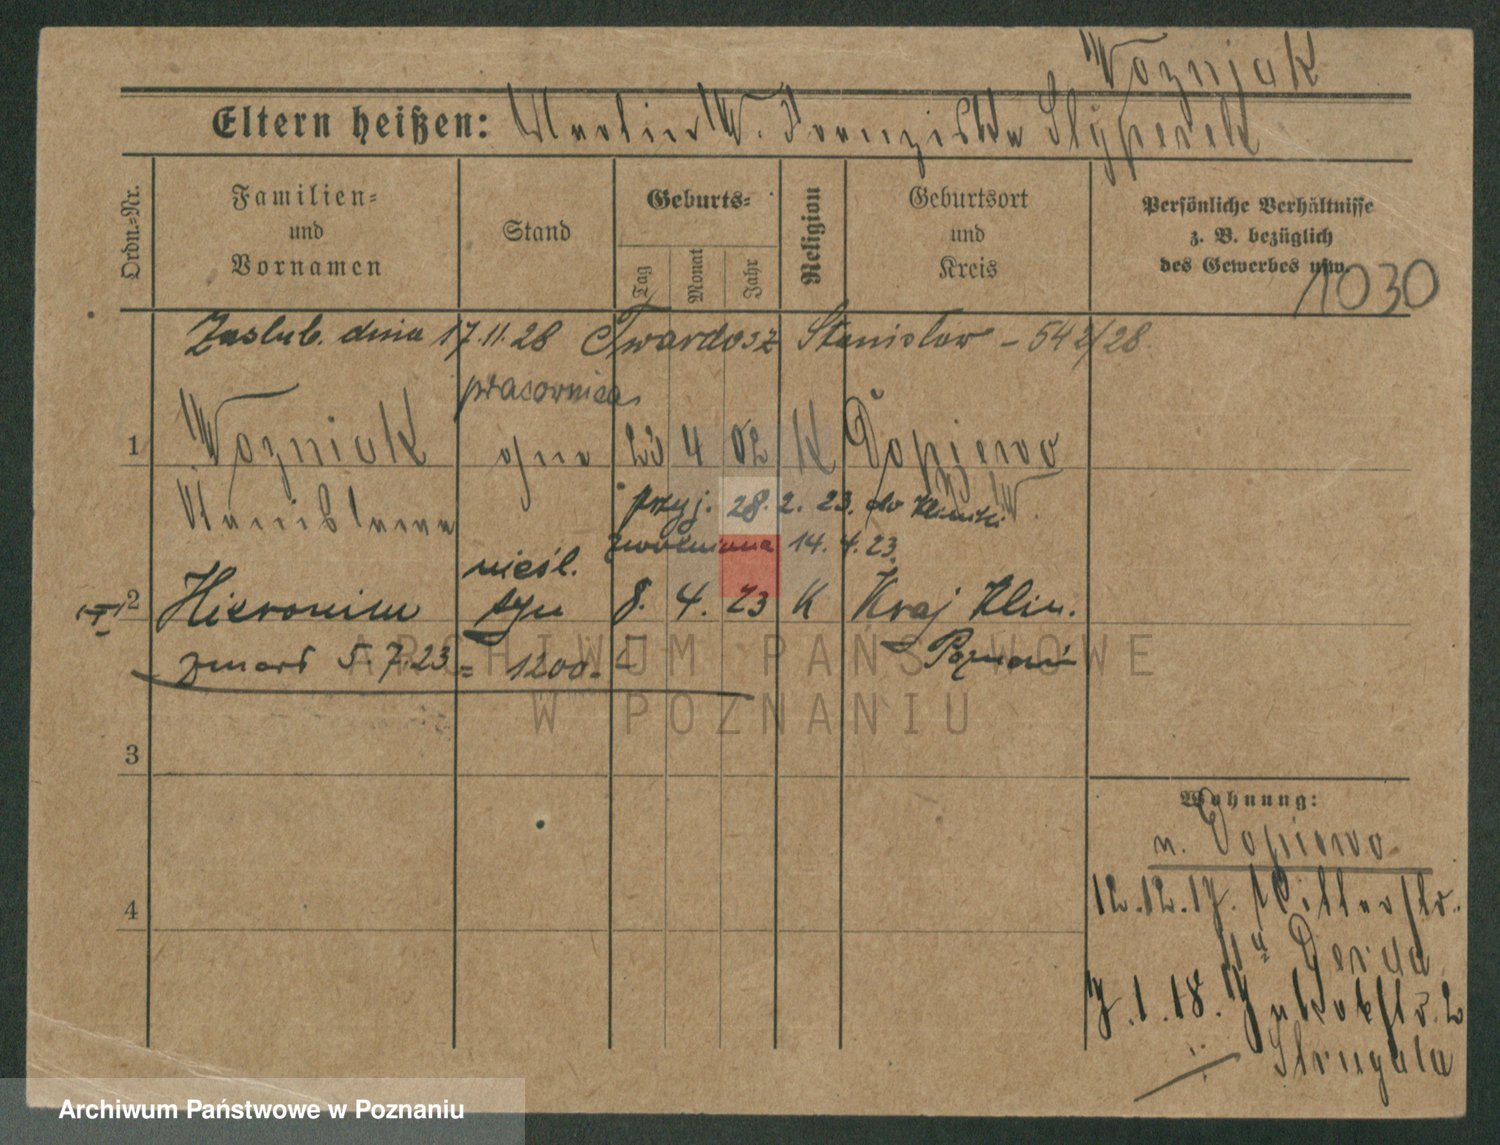 Wozniak
Eltern heißen: Martin W. Franziska Słyperek
Ordn.-Nr.
Familien- und Vornamen
Stand
Geburts-
Tag
Monat
Jahr
Religion
Geburtsort und Kreis
Persönliche Verhältnisse
z. B. bezüglich
des Gewerbes usw.
1030
Zaslub. dnia 17.11.28 Twardosz Stanisław - 542/28.
pracownica
1 Wozniak ohne 23 4 02 K Dopiewo
Stanislawa
W.
przyj. 28. 2. 23. do Kliniki
zwolniona 14. 4. 23.
nieśl.
2 Hieronim syn 8. 4. 23 K Kraj Klin.
zmarł 5. 7. 23 = 1200.- Poznań
3
4
Wohnung:
n. Dopiewo
12.12.17. Ritterstr.
11a
7.1.18. Jakobstr. 2
Strugala
ARCHIWUM PAŃSTWOWE
W POZNANIU
Archiwum Państwowe w Poznaniu